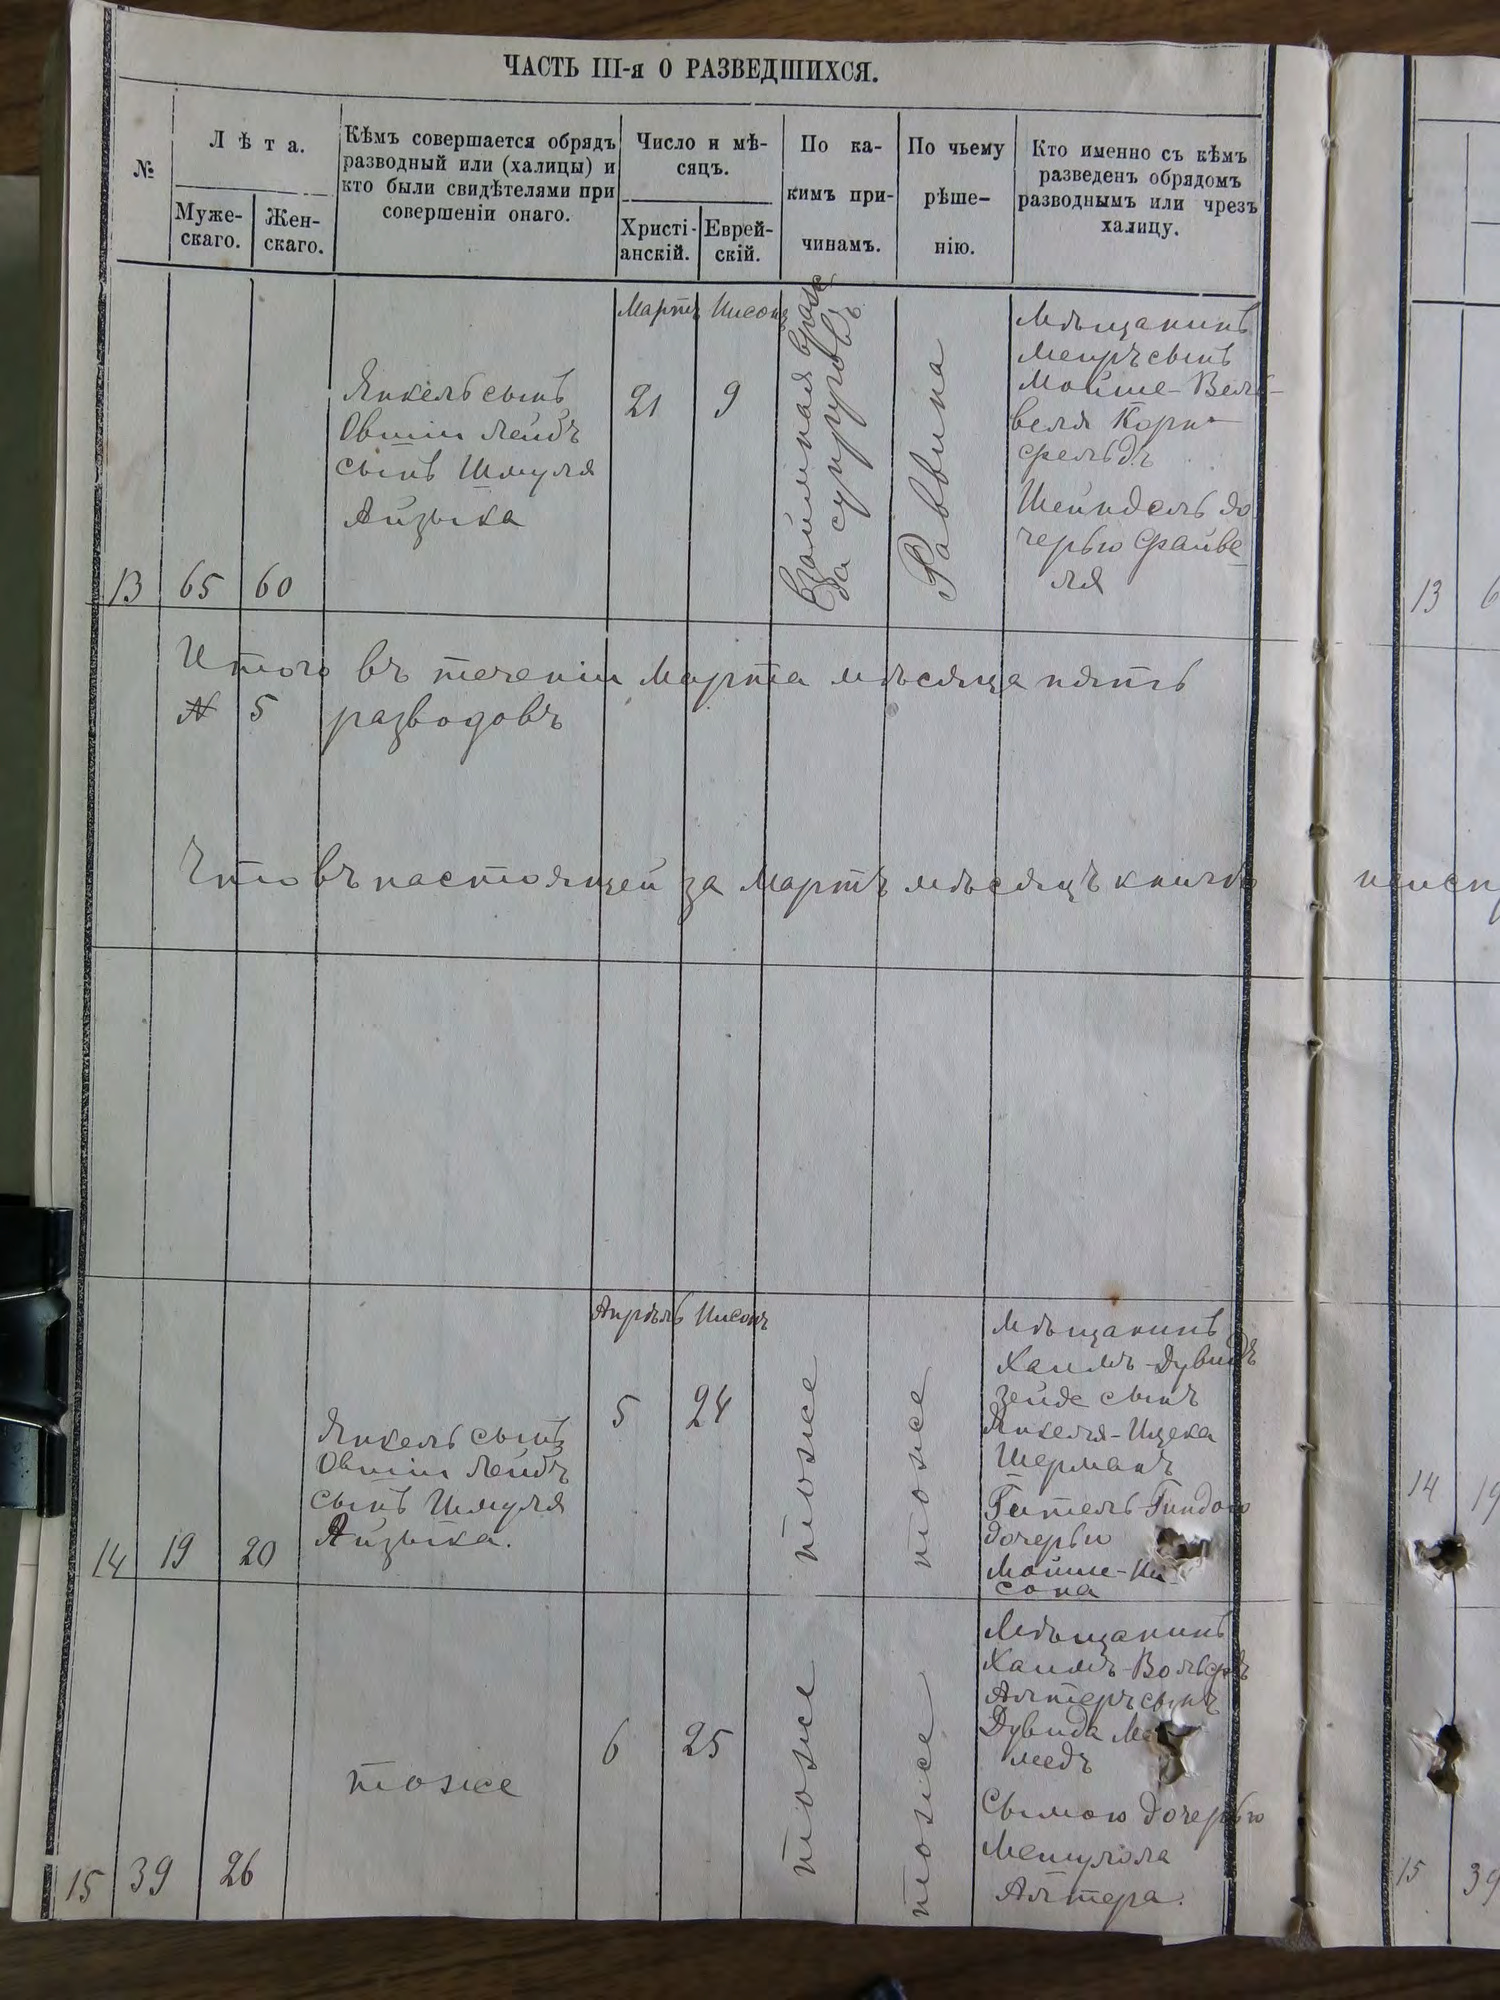 ЧАСТЬ III-я О РАЗВЕДШИХСЯ.
№
Лѣта.
Муже-
скаго.
Жен-
скаго.
Кѣмъ совершается обрядъ
разводный или (халицы) и
кто были свидѣтелями при
совершеніи онаго.
Число и мѣ-
сяцъ.
Христі-
анскій.
Еврей-
скій.
По ка-
кимъ при-
чинамъ.
По чьему
рѣше-
нію.
Кто именно съ кѣмъ
разведенъ обрядомъ
разводнымъ или чрезъ
халицу.
13
65
60
Янкель сынъ
Овшіи Лейбъ
сынъ Шмуля
Айзыка
Мартъ
21
Нисонъ
9
Взаимная вражда
супруговъ
Раввина
Мѣщанинъ
Меиръ сынъ
Мойше-Вель-
веля Корн-
фельдъ
Шейндель до
черью Файве
ля
13
6
Итого въ теченіи Марта мѣсяца пять
№ 5 разводовъ
Что въ настоящей за Мартъ мѣсяцъ книгѣ
14
19
20
Янкель сынъ
Овшіи Лейбъ
сынъ Шмуля
Айзыка.
Апрѣль
5
Нисонъ
24
тоже
тоже
Мѣщанинъ
Хаимъ-Дувидъ
Зейде сынъ
Янкеля-Ицека
Шерманъ
Гителъ-Гиндою
дочерью
Мойше-Ни-
сона
14
19
15
39
26
тоже
6
25
тоже
тоже
Мѣщанинъ
Хаимъ-Вольфъ
Алтеръ сынъ
Дувида
медъ
Сымою дочерью
Мешулома
Алтера.
15
39